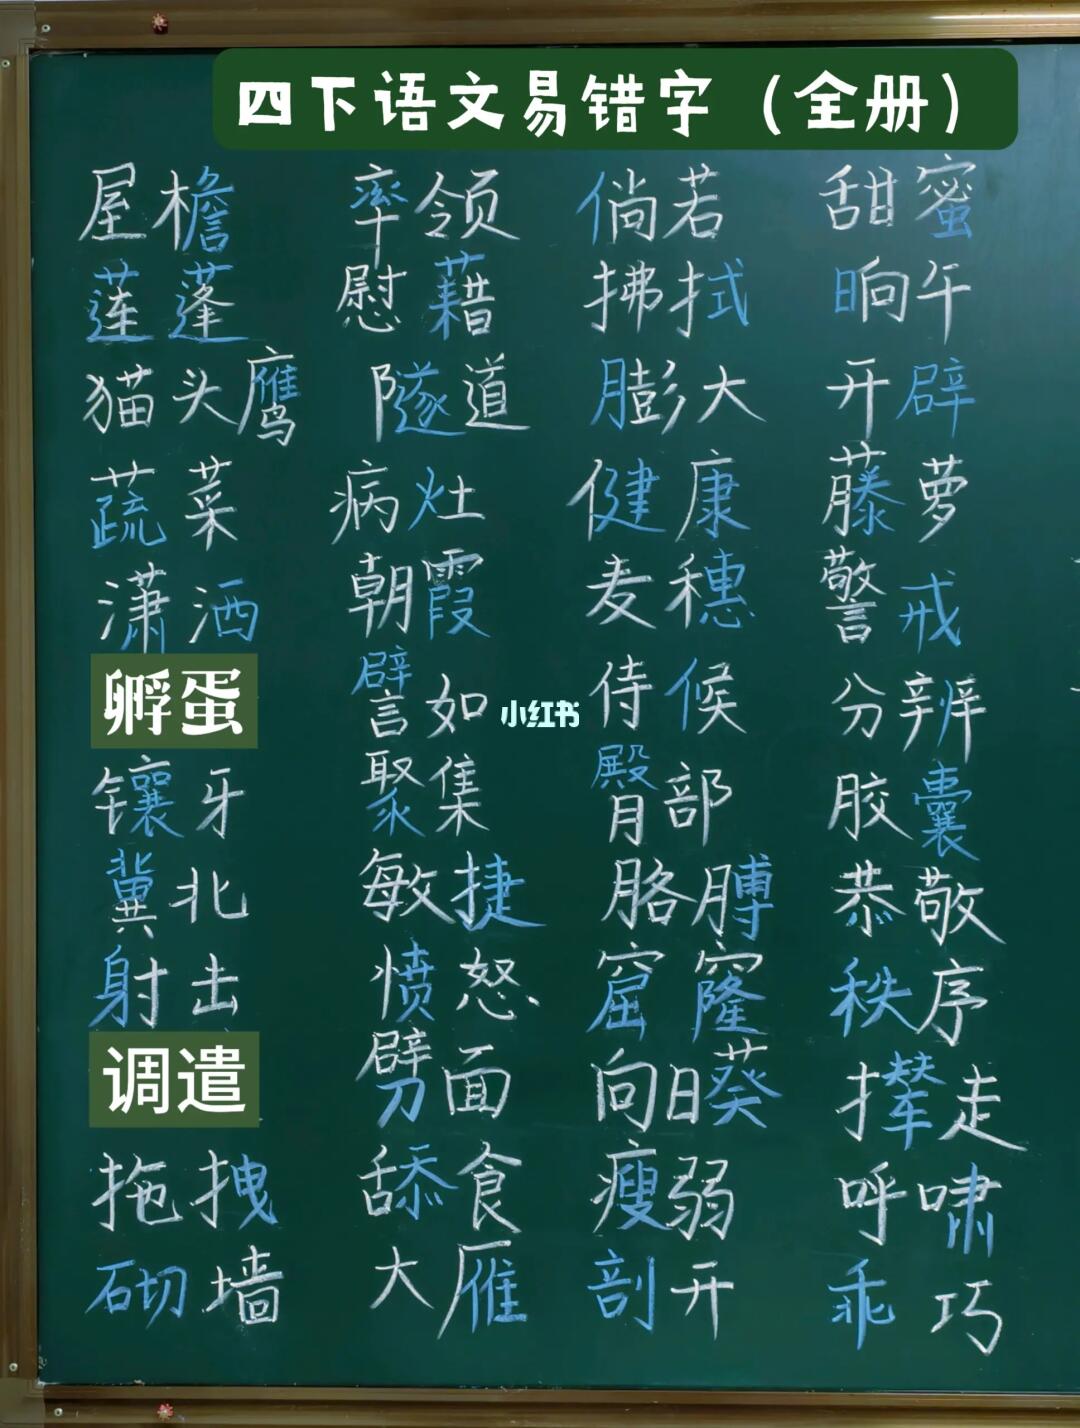 四下语文易错字（全册）
屋檐 率领 倘若 甜蜜
莲蓬 慰藉 拂拭 晌午
猫头鹰 隧道 膨大 开辟
蔬菜 病灶 健康 藤萝
潇洒 朝霞 麦穗 警戒
孵蛋 譬如 小红书 侍候 分辨
镶牙 聚集 臀部 胶囊
冀北 敏捷 胳膊 恭敬
射击 愤怒 窟窿 秩序
调遣 劈面 向日葵 撵走
拖拽 舔食 瘦弱 呼啸
砌墙 大雁 剖开 乖巧